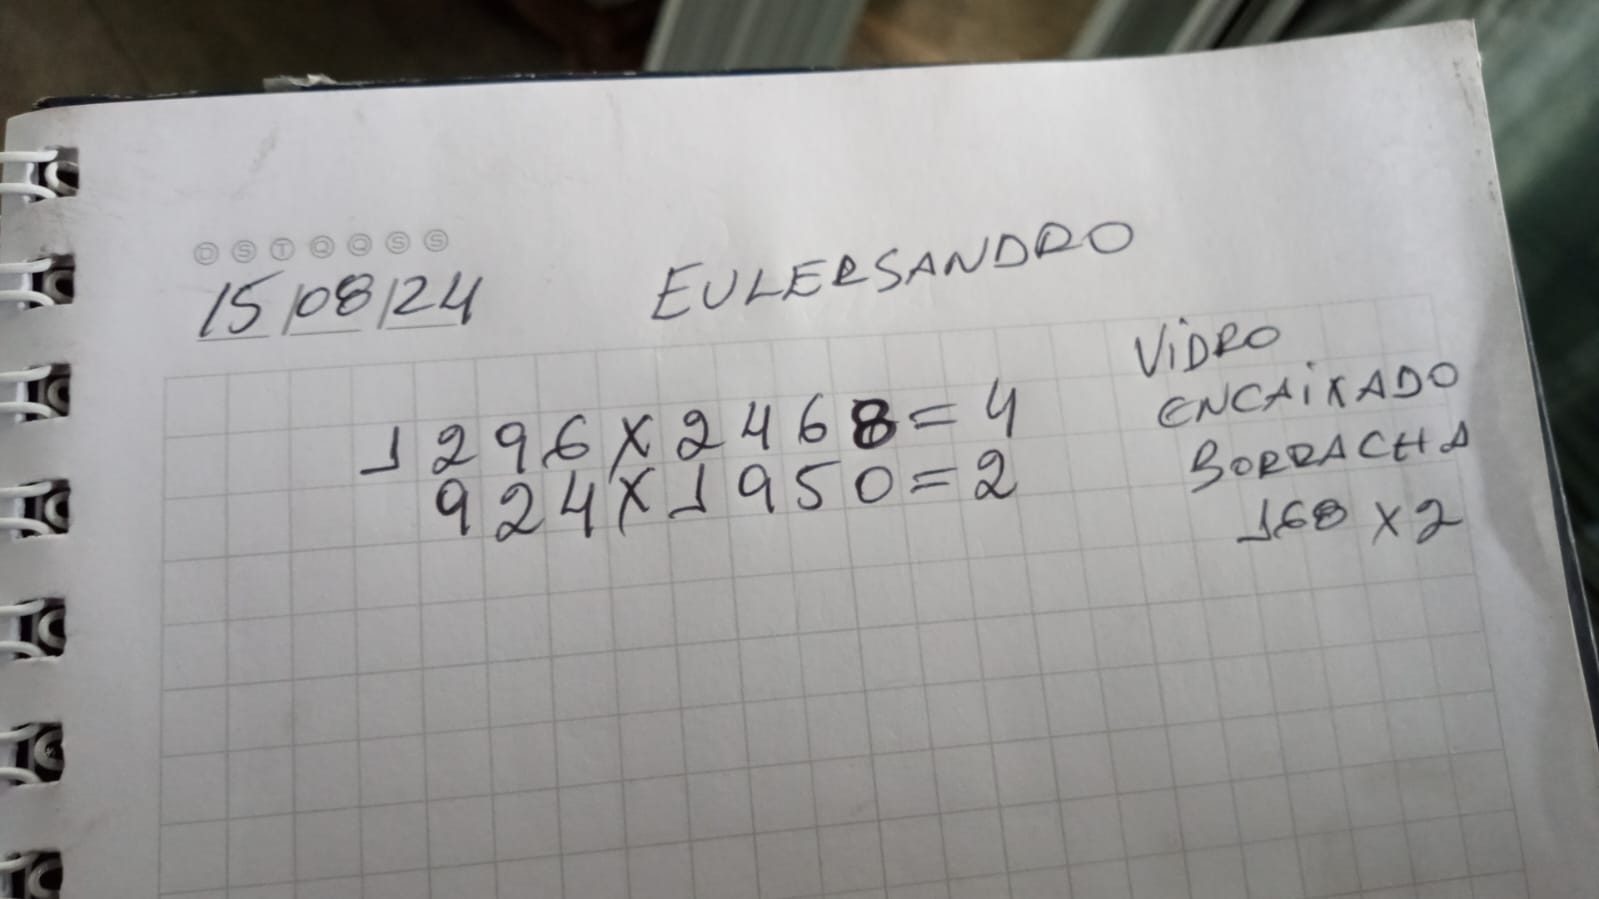 D S T Q Q S S
15/08/24 EULERSANDRO
1296X2468=4
924X1950=2
VIDRO
ENCAIXADO
BORRACHA
168 X 2